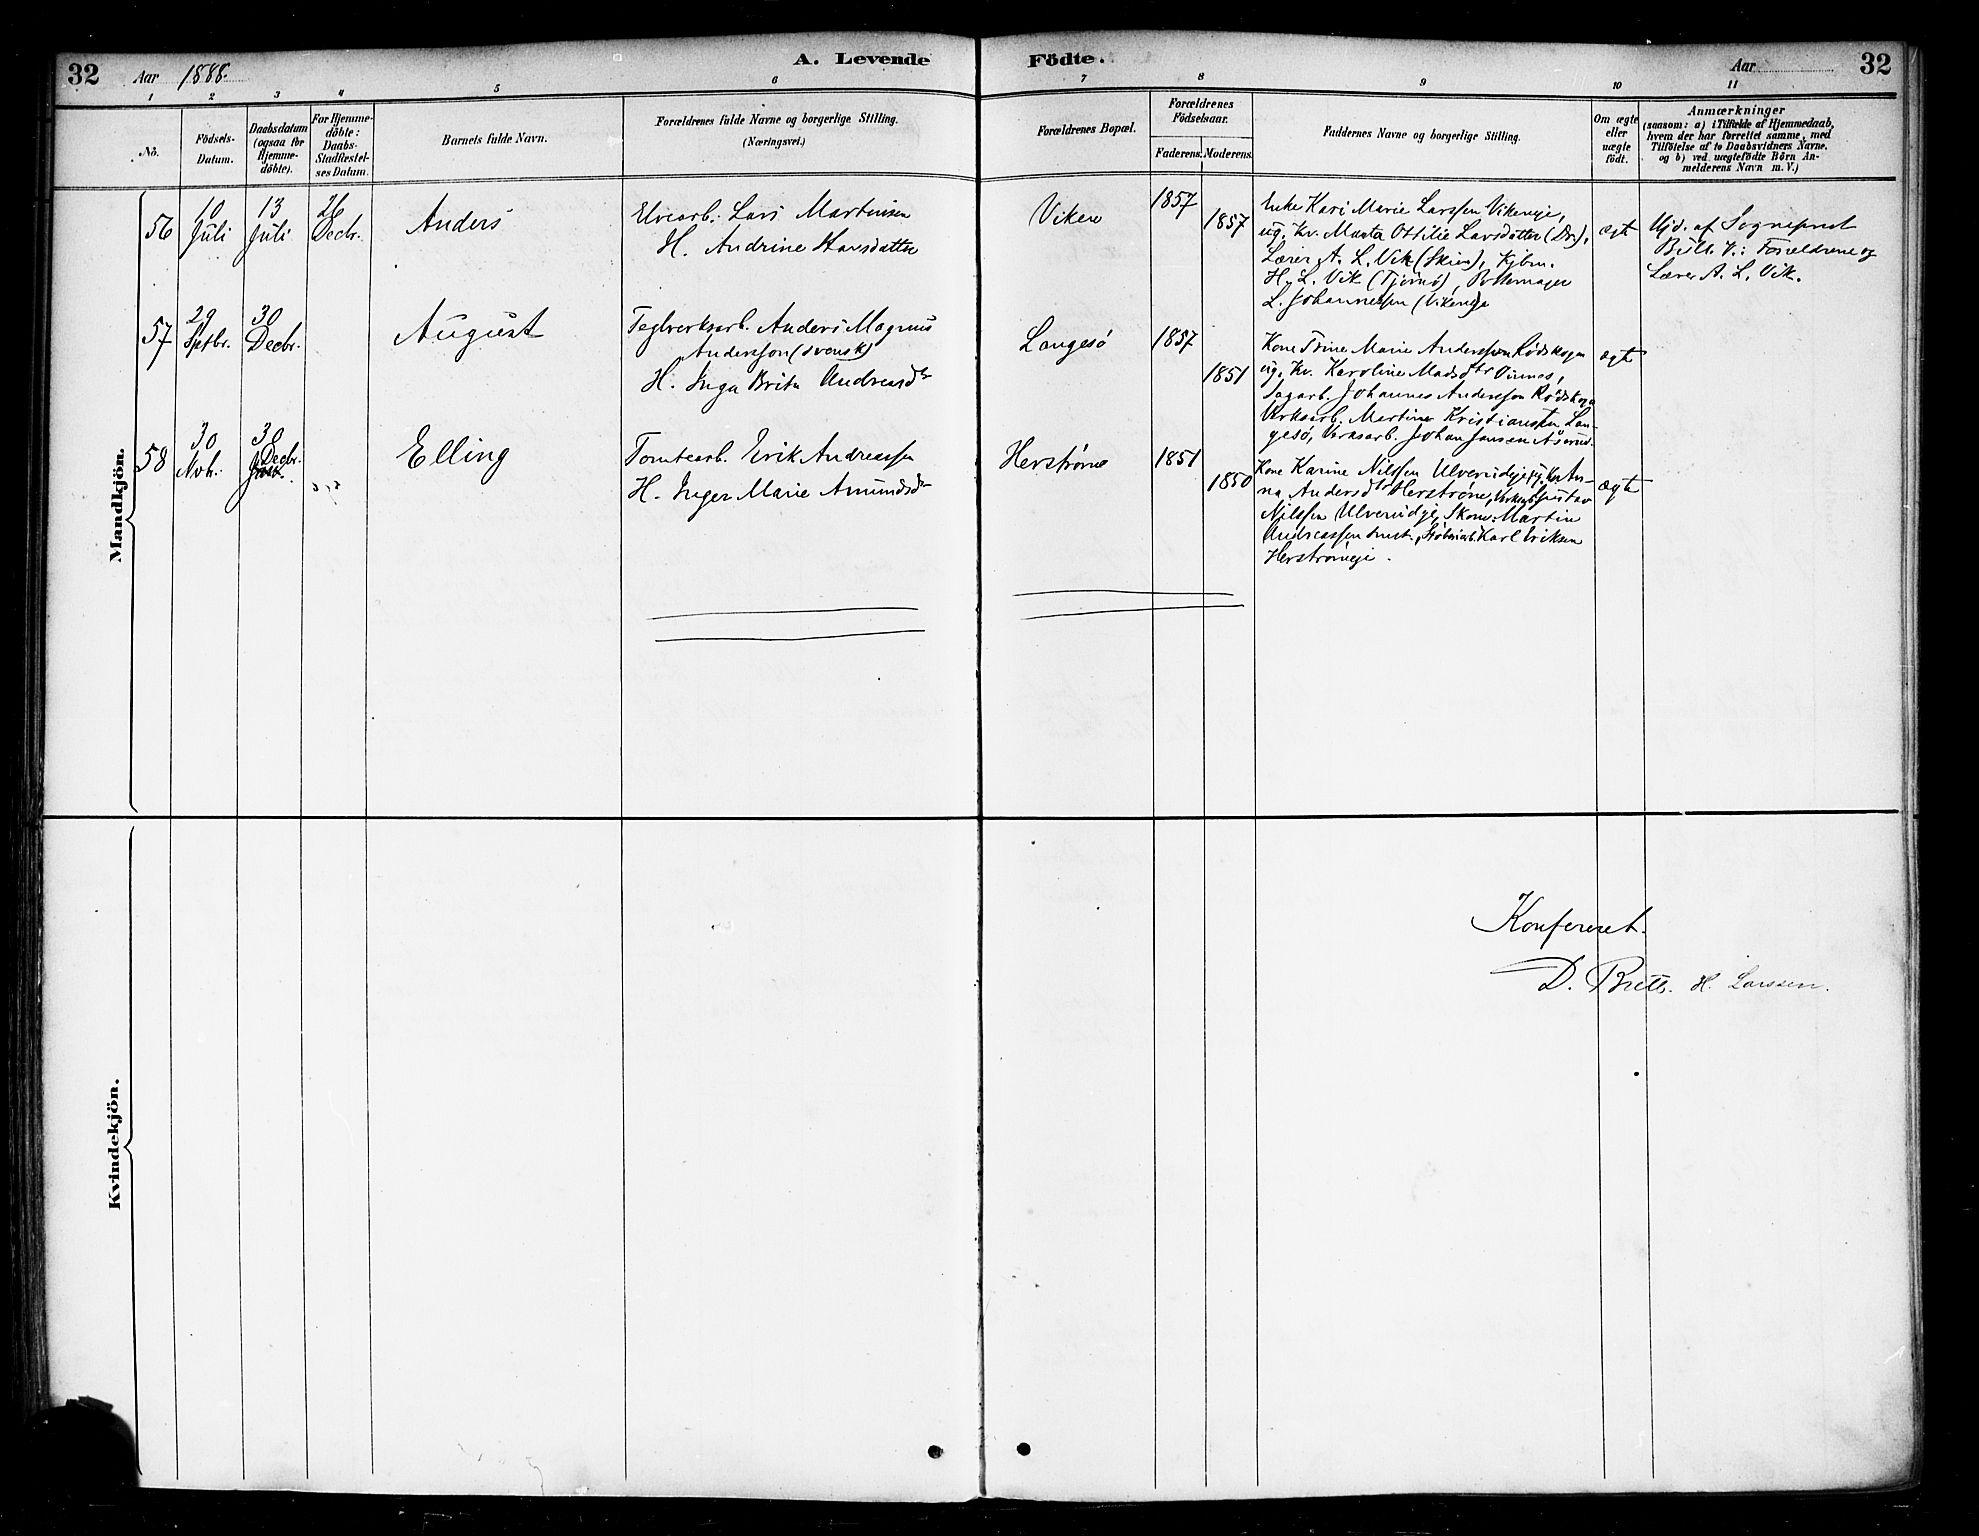 32 Aar 1888. A. Levende Födte. Aar 32
1 2 3 4 5 6 7 8 9 10 11
No.
Födsels-
Datum.
Daabsdatum
(ogsaa for
Hjemme-
döbte).
For Hjemme-
döbte:
Daabs-
Stadfæstel-
ses Datum.
Barnets fulde Navn.
Forældrenes fulde Navne og borgerlige Stilling.
(Næringsvei.)
Forældrenes Bopæl.
Forældrenes
Födselsaar.
Faderens. Moderens.
Faddernes Navne og borgerlige Stilling.
Om ægte
eller
uægte
födt.
Anmærkninger
(saasom: a) i Tilfælde af Hjemmedaab,
hvem der har forrettet samme, med
Tilföielse af to Daabsvidners Navne.
og b) ved uægtefödte Börn An-
melderens Navn m. V.)
Mandkjön.
56
10
Juli
13
Juli
26
Decbr.
Anders
Elvearb. Lars Martinsen
H. Andrine Hansdatter
Viken
1857
1857
Enke Kari Marie Larssen Vikeneje,
ug. Kv. Marta Ottilie Larsdatter (Dr.),
Lærer A. L. Vik (Skien), Kjbm.
H. L. Vik (Tjømø), Pottemager
L. Johannessen (Vikeneje
ægte
Hjd. af Sogneprest
Bull. V.: Forældrene og
Lærer A. L. Vik.
57
29
Septbr.
30
Decbr.
August
Teglverksarb. Anders Magnus
Andersson (svensk)
H. Inga Brita Andreasdr
Langesø
1857
1851
Kone Trine Marie Anderssen Rødskogen
ug. Kv. Karoline Madsdtr Vinnes,
Sagarb. Johannes Anderssen Rødskogen
Verksarb. Martin Kristianssen Lan-
gesø, Verksarb. Johan Jansen Åserud.
ægte
58
30
Nvb.
30
Decbr.
Elling
Tomtearb. Erik Andreassen
H. Inger Marie Amundsdr
Herstrøm
1851
1850
Kone Karine Nilssen Ulverudeje, ug. Kv. An-
na Andersdtr Herstrøm, Verksarb. Gustav
Nilssen Ulverudeje, Skom. Martin
Andreassen, Karl Eriksen
Herstrømeje.
ægte
Kvindekjön.
Konfereret.
D. Bull. H. Larssen.